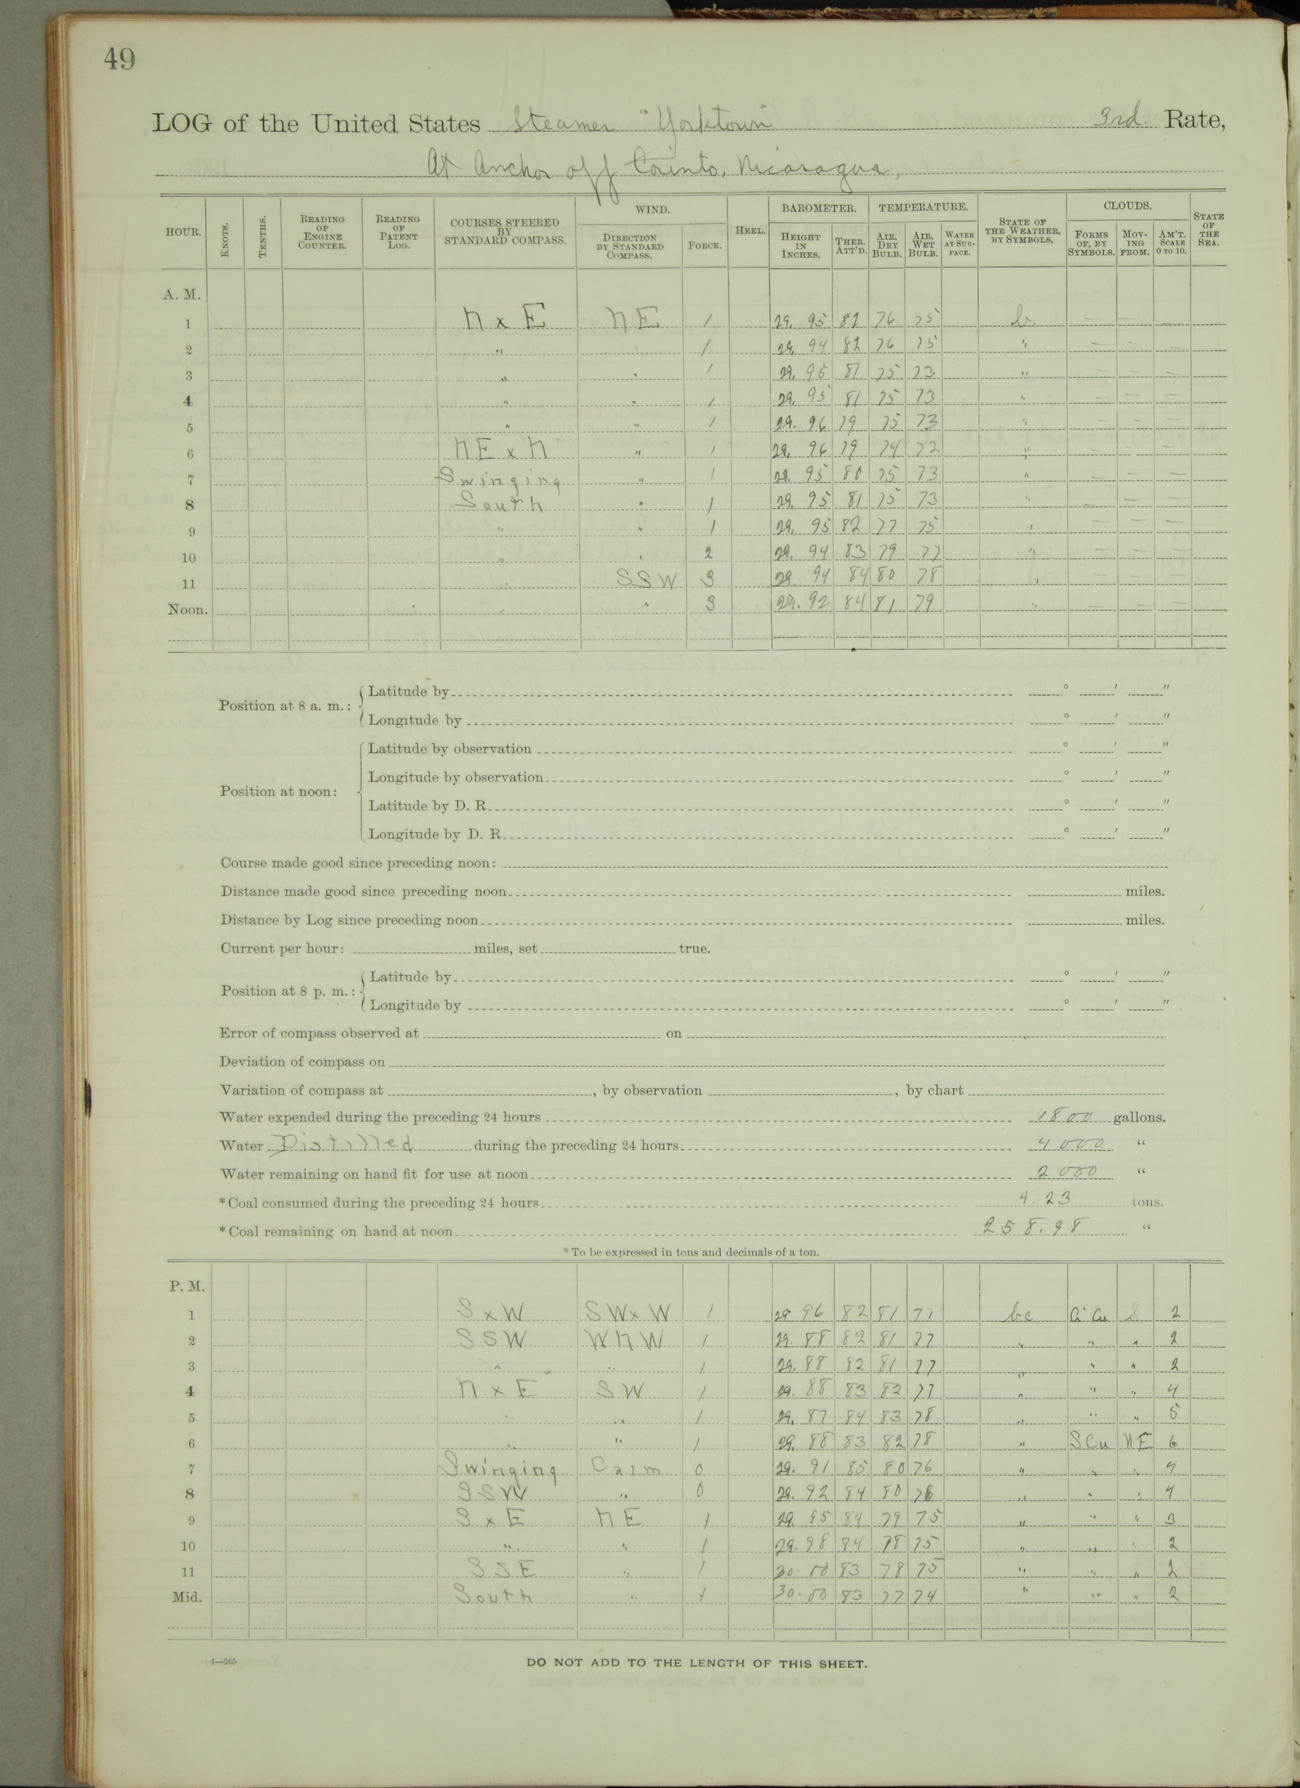 49
LOG of the United States Steamer "Yorktown" 3rd. Rate,
At Anchor off Corinto, Nicaragua,
HOUR. KNOTS. TENTHS. READING OF ENGINE COUNTER. READING OF PATENT LOG. COURSES STEERED BY STANDARD COMPASS. WIND. DIRECTION BY STANDARD COMPASS. FORCE. HEEL. BAROMETER. HEIGHT IN INCHES. THER. ATT'D. TEMPERATURE. AIR, DRY BULB. AIR, WET BULB. WATER AT SURFACE. STATE OF THE WEATHER, BY SYMBOLS. CLOUDS. FORMS OF, BY SYMBOLS. MOVING FROM. AM'T. SCALE 0 TO 10. STATE OF THE SEA.
A. M.
1 N x E NE 1 29. 95 82 76 75 b — — —
2 " " 1 29. 94 82 76 75 " — — —
3 " " 1 29. 95 81 75 73 " — — —
4 " " 1 29. 95 81 75 73 " — — —
5 " " 1 29. 96 79 75 73 " — — —
6 NE x N " 1 29. 96 79 74 72 " — — —
7 Swinging " 1 29. 95 80 75 73 " — — —
8 South " 1 29. 95 81 75 73 " — — —
9 " " 1 29. 95 82 77 75 " — — —
10 " " 2 29. 94 83 79 77 " — — —
11 " SSW 3 29. 94 84 80 78 " — — —
Noon. " " 3 29. 92 84 81 79 " — — —
Position at 8 a. m.: Latitude by ° ' "
Longitude by ° ' "
Position at noon: Latitude by observation ° ' "
Longitude by observation ° ' "
Latitude by D. R. ° ' "
Longitude by D. R. ° ' "
Course made good since preceding noon:
Distance made good since preceding noon miles.
Distance by Log since preceding noon miles.
Current per hour: miles, set true.
Position at 8 p. m.: Latitude by ° ' "
Longitude by ° ' "
Error of compass observed at on
Deviation of compass on
Variation of compass at , by observation , by chart
Water expended during the preceding 24 hours 1800 gallons.
Water Distilled during the preceding 24 hours 4000 "
Water remaining on hand fit for use at noon 2000 "
*Coal consumed during the preceding 24 hours 4.23 tons.
*Coal remaining on hand at noon 258.98 "
*To be expressed in tons and decimals of a ton.
P. M.
1 S x W SW x W 1 29 96 82 81 77 bc Ci Cu 2
2 SSW WNW 1 29. 88 82 81 77 " " " 2
3 " " 1 29. 88 82 81 77 " " " 2
4 N x E SW 1 29. 88 83 82 77 " " " 4
5 " " 1 29. 87 84 83 78 " " " 5
6 " " 1 29. 88 83 82 78 " S Cu NE 6
7 Swinging Calm 0 29. 91 85 80 76 " " " 4
8 SSW " 0 29. 92 84 80 76 " " " 4
9 S x E NE 1 29. 95 84 79 75 " " " 3
10 " " 1 29. 98 84 78 75 " " " 2
11 SSE " 1 30. 00 83 78 75 " " " 2
Mid. South " 1 30. 00 83 77 74 " " " 2
4—265
DO NOT ADD TO THE LENGTH OF THIS SHEET.